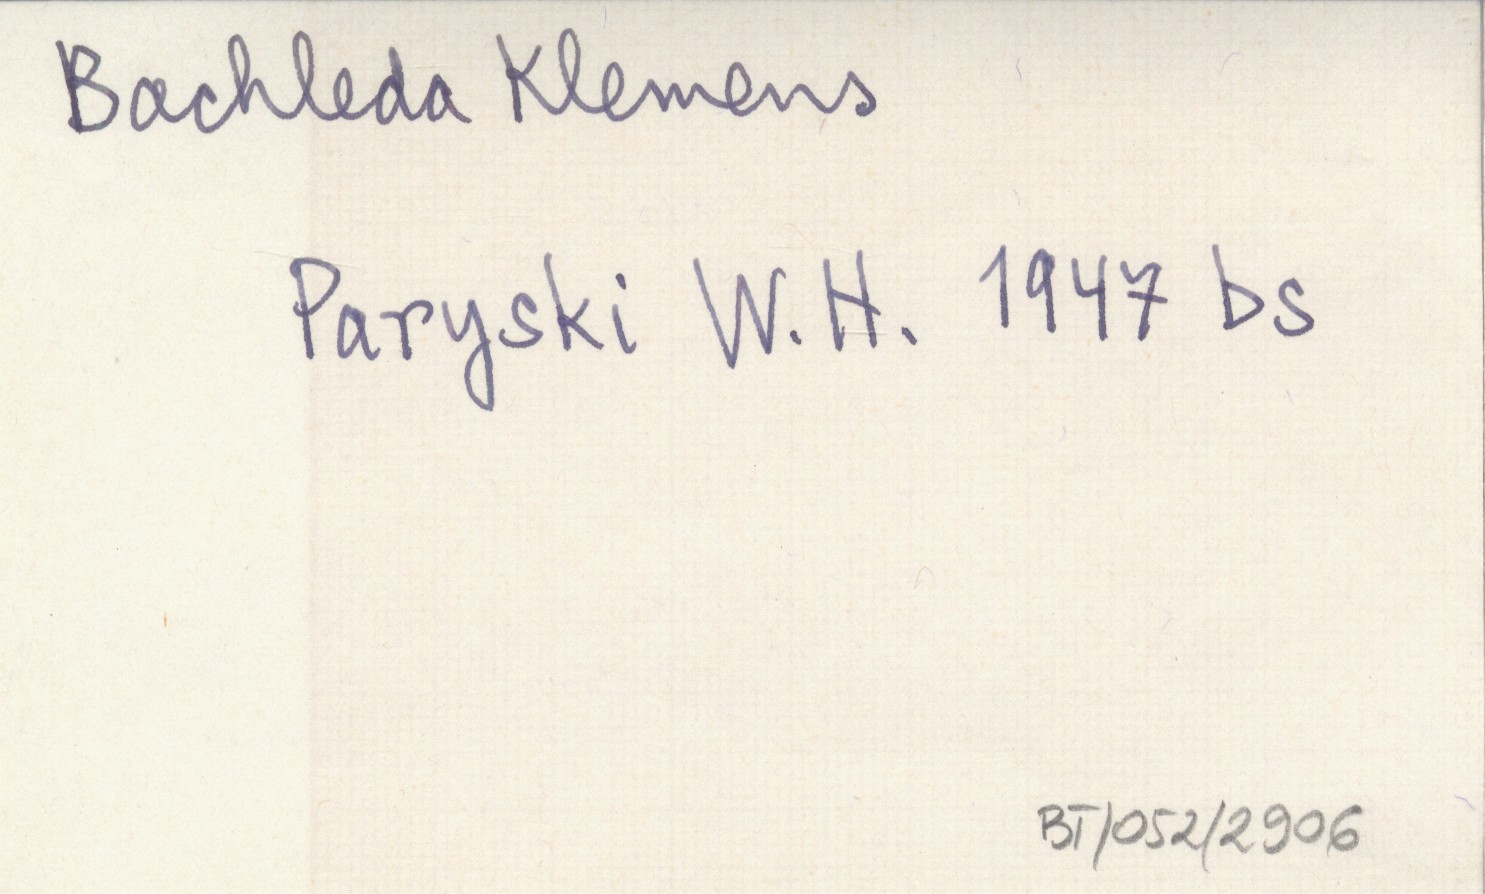 Bachleda Klemens
Paryski W.H. 1947 bs
BT/052/2906